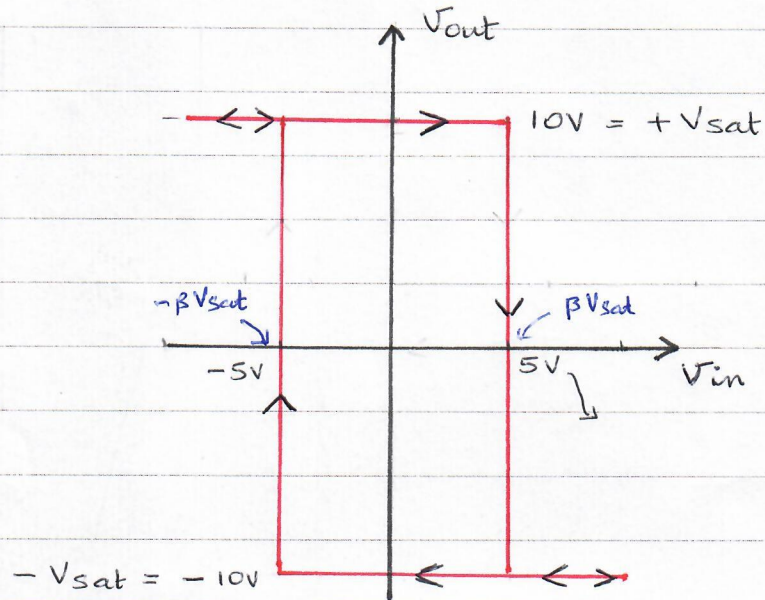 Vout
10V = + Vsat
-βVsat
βVsat
-5V
5V
Vin
- Vsat = -10V